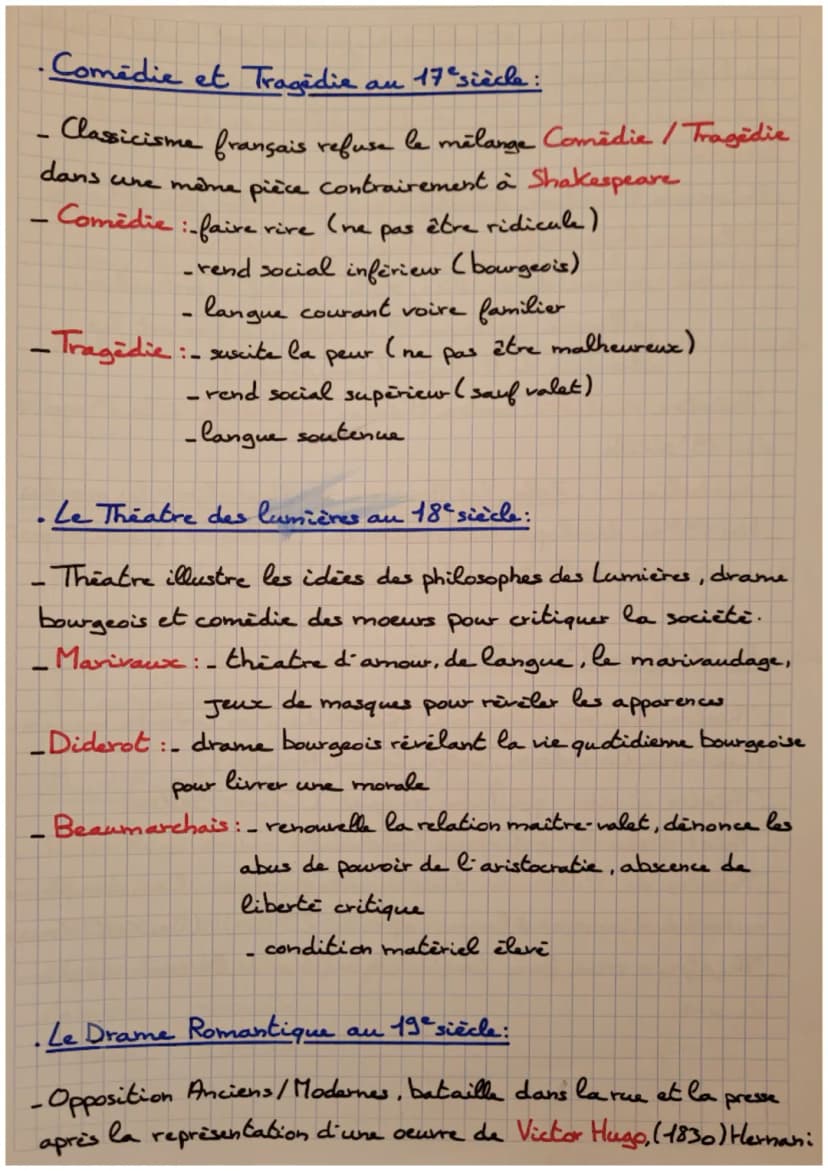 . Comédie et Tragédie au 17e siècle :
- Classicisme français refuse le mélange Comédie / Tragédie
dans une même pièce contrairement à Shakespeare
- Comédie : - faire rire (ne pas être ridicule)
- rend social inférieur (bourgeois)
- langue courant voire familier
- Tragédie : - suscite la peur (ne pas être malheureux)
- rend social supérieur (sauf valet)
- langue soutenue
. Le Théatre des lumières au 18e siècle :
- Théatre illustre les idées des philosophes des Lumières, drame
bourgeois et comédie des moeurs pour critiquer la société.
- Marivaux : - théatre d'amour, de langue, le marivaudage,
jeux de masques pour révéler les apparences
- Diderot : - drame bourgeois révélant la vie quotidienne bourgeoise
pour livrer une morale
- Beaumarchais : - renouvelle la relation maître-valet, dénonce les
abus de pouvoir de l'aristocratie, abscence de
liberté critique
- condition matériel élevé
. Le Drame Romantique au 19e siècle :
- Opposition Anciens / Modernes, bataille dans la rue et la presse
après la représentation d'une oeuvre de Victor Hugo, (1830) Hernani